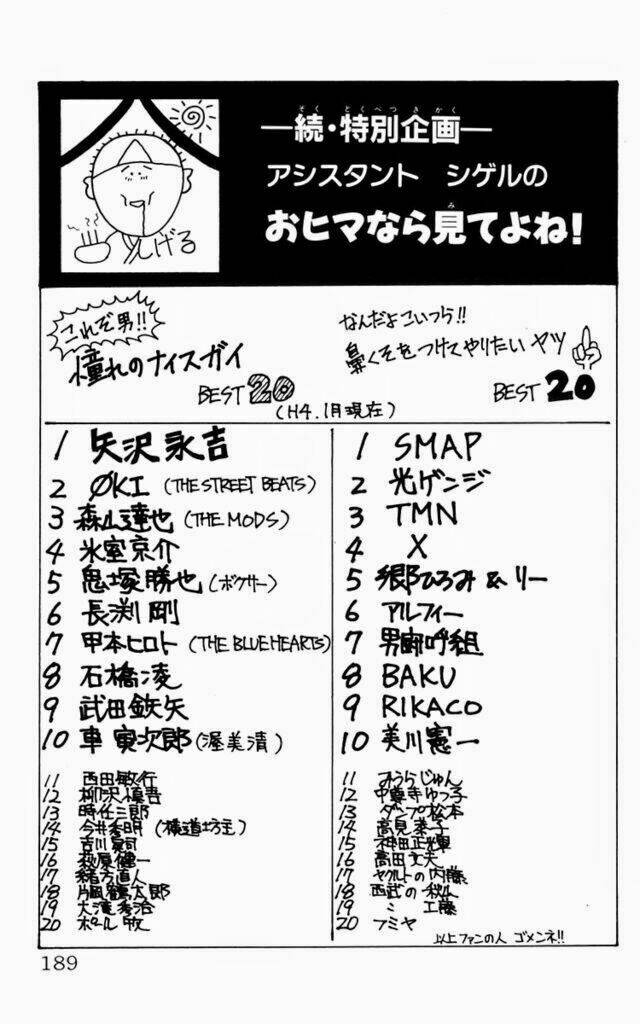 ―続・特別企画―
アシスタント シゲルの
おヒマなら見てよね!
しげる
これぞ男!!
憧れのナイスガイ
BEST 20
(H4.1月現在)
なんだよこいつら!!
鼻くそをつけてやりたいヤツ
BEST 20
1 矢沢永吉
2 ØKI (THE STREET BEATS)
3 森山達也 (THE MODS)
4 氷室京介
5 鬼塚勝也 (ボクサー)
6 長渕剛
7 甲本ヒロト (THE BLUE HEARTS)
8 石橋凌
9 武田鉄矢
10 車寅次郎 (渥美清)
11 西田敏行
12 柳沢慎吾
13 時任三郎
14 今井秀明 (横道坊主)
15 吉川晃司
16 萩原健一
17 緒方直人
18 片岡鶴太郎
19 大滝秀治
20 ポール牧
1 SMAP
2 光ゲンジ
3 TMN
4 X
5 郷ひろみ & リー
6 アルフィー
7 男闘呼組
8 BAKU
9 RIKACO
10 美川憲一
11 みうらじゅん
12 中尊寺ゆつ子
13 ダンプ松本
14 高見恭子
15 神田正輝
16 高田文夫
17 ヤクルトの内藤
18 西武の秋山
19 〃 工藤
20 フミヤ
以上ファンの人 ゴメンネ!!
189